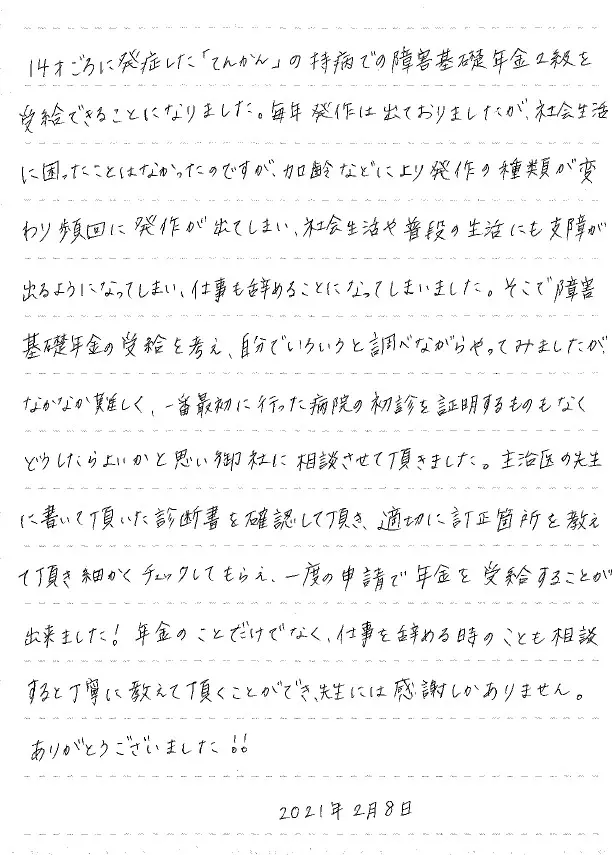 14才ごろに発症した「てんかん」の持病での障害基礎年金2級を
受給できることになりました。毎年発作は出ておりましたが、社会生活
に困ったことはなかったのですが、加齢などにより発作の種類が変
わり頻回に発作が出てしまい、社会生活や普段の生活にも支障が
出るようになってしまい、仕事も辞めることになってしまいました。そこで障害
基礎年金の受給を考え、自分でいろいろと調べながらやってみましたが、
なかなか難しく、一番最初に行った病院の初診を証明するものもなく
どうしたらよいかと思い御社に相談させて頂きました。主治医の先生
に書いて頂いた診断書を確認して頂き、適切に訂正箇所を教え
て頂き細かくチェックしてもらえ、一度の申請で年金を受給することが
出来ました！年金のことだけでなく、仕事を辞める時のことも相談
すると丁寧に教えて頂くことができ、先生には感謝しかありません。
ありがとうございました！！
2021年2月8日